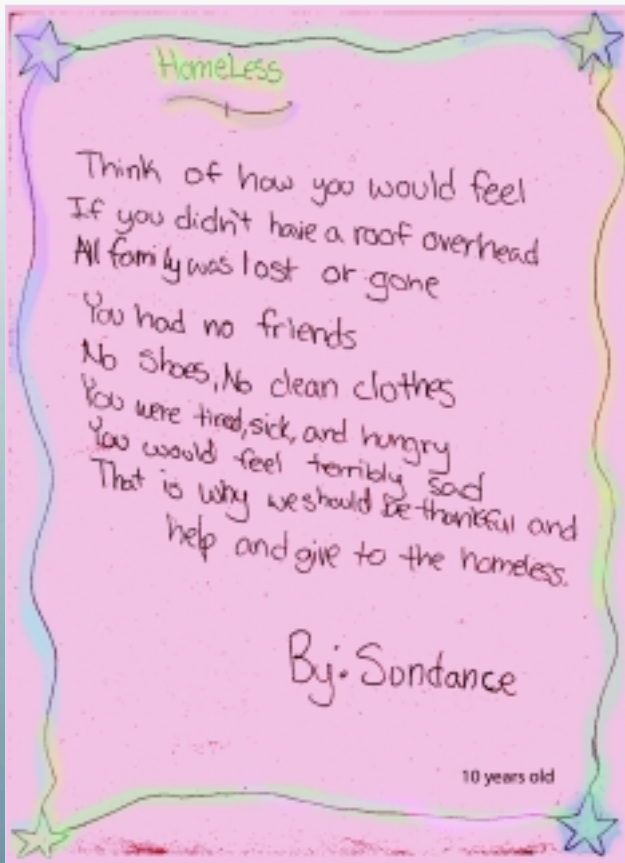 HomeLess
Think of how you would feel
If you didn't have a roof overhead
All family was lost or gone
You had no friends
No shoes, No clean clothes
You were tired, sick, and hungry
You would feel terribly sad
That is why we should be thankful and
help and give to the homeless.
By: Sundance
10 years old